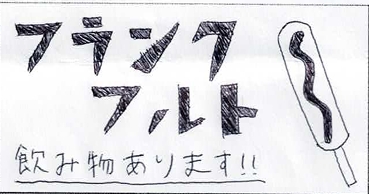 フランク
フルト
飲み物あります!!